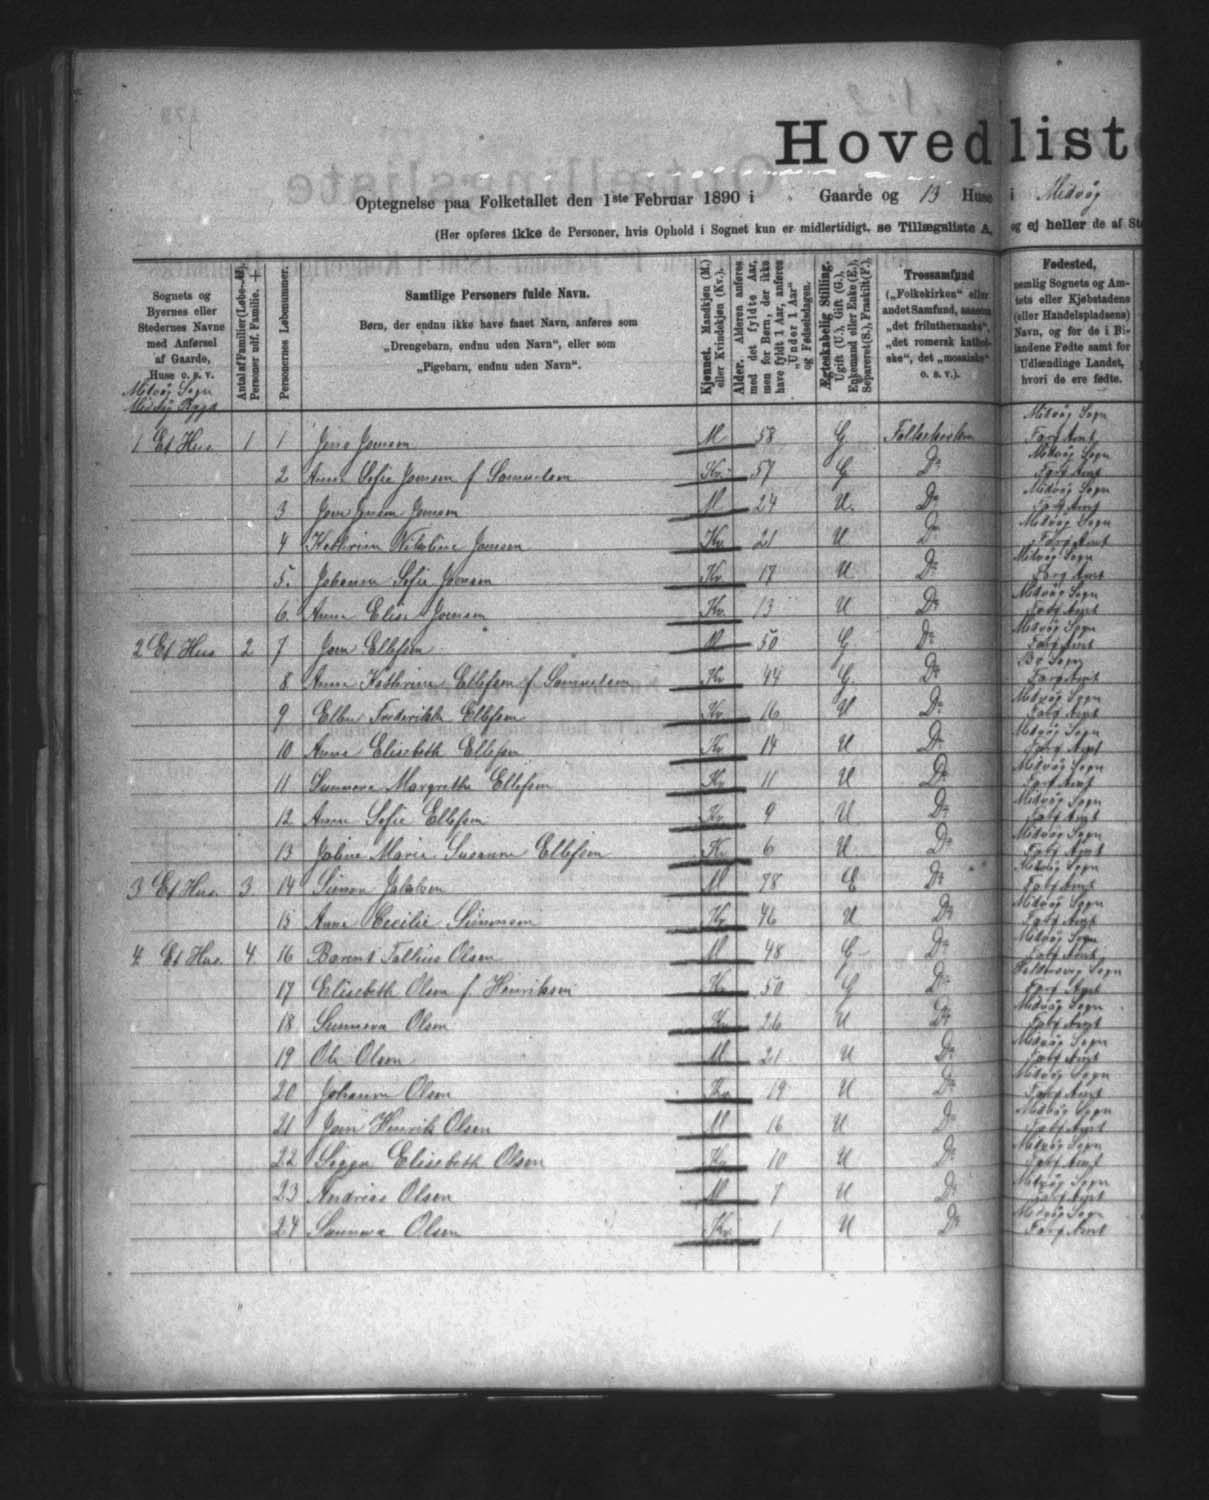 Hovedliste
Optegnelse paa Folketallet den 1ste Februar 1890 i Gaarde og 13 Huse i Midvåg
(Her opføres ikke de Personer, hvis Ophold i Sognet kun er midlertidigt, se Tillægsliste A, og ej heller de af
Sognets og Byernes eller Stedernes Navne med Anførsel af Gaarde, Huse o. s. v.
Antal af Familier (Løbe-№). Personer udf. Familie. +
Personernes Løbenummer.
Samtlige Personers fulde Navn.
Børn, der endnu ikke have faaet Navn, anføres som
„Drengebarn, endnu uden Navn“, eller som
„Pigebarn, endnu uden Navn“.
Kjønnet. Mandkjøn (M.) eller Kvindekjøn (Kv.).
Alder. Alderen anføres med det fyldte Aar, men for Børn, der ikke have fyldt 1 Aar, anføres „Under 1 Aar“ og Fødselsdagen.
Ægteskabelig Stilling. Ugift (U.), Gift (G.), Enkemand eller Enke (E.), Separeret (S.), Fraskilt (F.).
Trossamfund („Folkekirken“ eller andet Samfund, saasom „det frilutheranske“, „det romersk katholske“, det „mosaiske“ o. s. v.).
Fødested, nemlig Sognets og Amtets eller Kjøbstadens (eller Handelspladsens) Navn, og for de i Bilandene Fødte samt for Udlændinge Landet, hvori de ere fødte.
Midvåg Sogn
Midvåg Bygd
1 Et Hus 1 1 Jens Joensen M 58 G Folkekirken Midvåg Sogn Færø Amt
2 Anne Sofie Joensen f Samuelsen Kv 57 G Do Midvåg Sogn Færø Amt
3 Joen Jensen Joensen M 24 U. Do Midvåg Sogn Færø Amt
4 Kathrine Nikoline Joensen Kv 21 U Do Midvåg Sogn Færø Amt
5. Johanne Sofie Joensen Kv 17 U Do Midvåg Sogn Færø Amt
6. Anne Elise Joensen Kv 13 U Do Midvåg Sogn Færø Amt
2 Et Hus 2 7 Joen Ellefsen M 50 G Do Midvåg Sogn Færø Amt
8 Anne Kathrine Ellefsen f. Samuelsen Kv 44 G. Do Bø Sogn Færø Amt
9 Ellen Frederikke Ellefsen Kv 16 U Do Midvåg Sogn Færø Amt
10 Anne Elisebeth Ellefsen Kv 14 U Do Midvåg Sogn Færø Amt
11 Sunneva Margrethe Ellefsen Kv 11 U Do Midvåg Sogn Færø Amt
12 Anne Sofie Ellefsen Kv 9 U Do Midvåg Sogn Færø Amt
13 Maria Susanne Ellefsen Kv 6 U. Do Midvåg Sogn Færø Amt
3 Et Hus. 3. 14 Simon Jakobsen M 78 E Do Midvåg Sogn Færø Amt
15 Anne Cecilie Simonsen Kv 46 U Do Midvåg Sogn Færø Amt
4. Et Hus. 4. 16 Olsen M 48 G Do Midvåg Sogn Færø Amt
17 Elisebeth Olsen f. Henriksen Kv 50 G Do Sogn Færø Amt
18 Sunneva Olsen Kv 26 U Do Midvåg Sogn Færø Amt
19 Ole Olsen M 21 U Do Midvåg Sogn Færø Amt
20 Johanne Olsen Kv 19 U Do Midvåg Sogn Færø Amt
21 Joen Henrik Olsen M 16 U Do Midvåg Sogn Færø Amt
22 Elisebeth Olsen Kv 10 U Do Midvåg Sogn Færø Amt
23 Andreas Olsen M 7 U Do Midvåg Sogn Færø Amt
24 Olsen Kv 1 U Do Midvåg Sogn Færø Amt